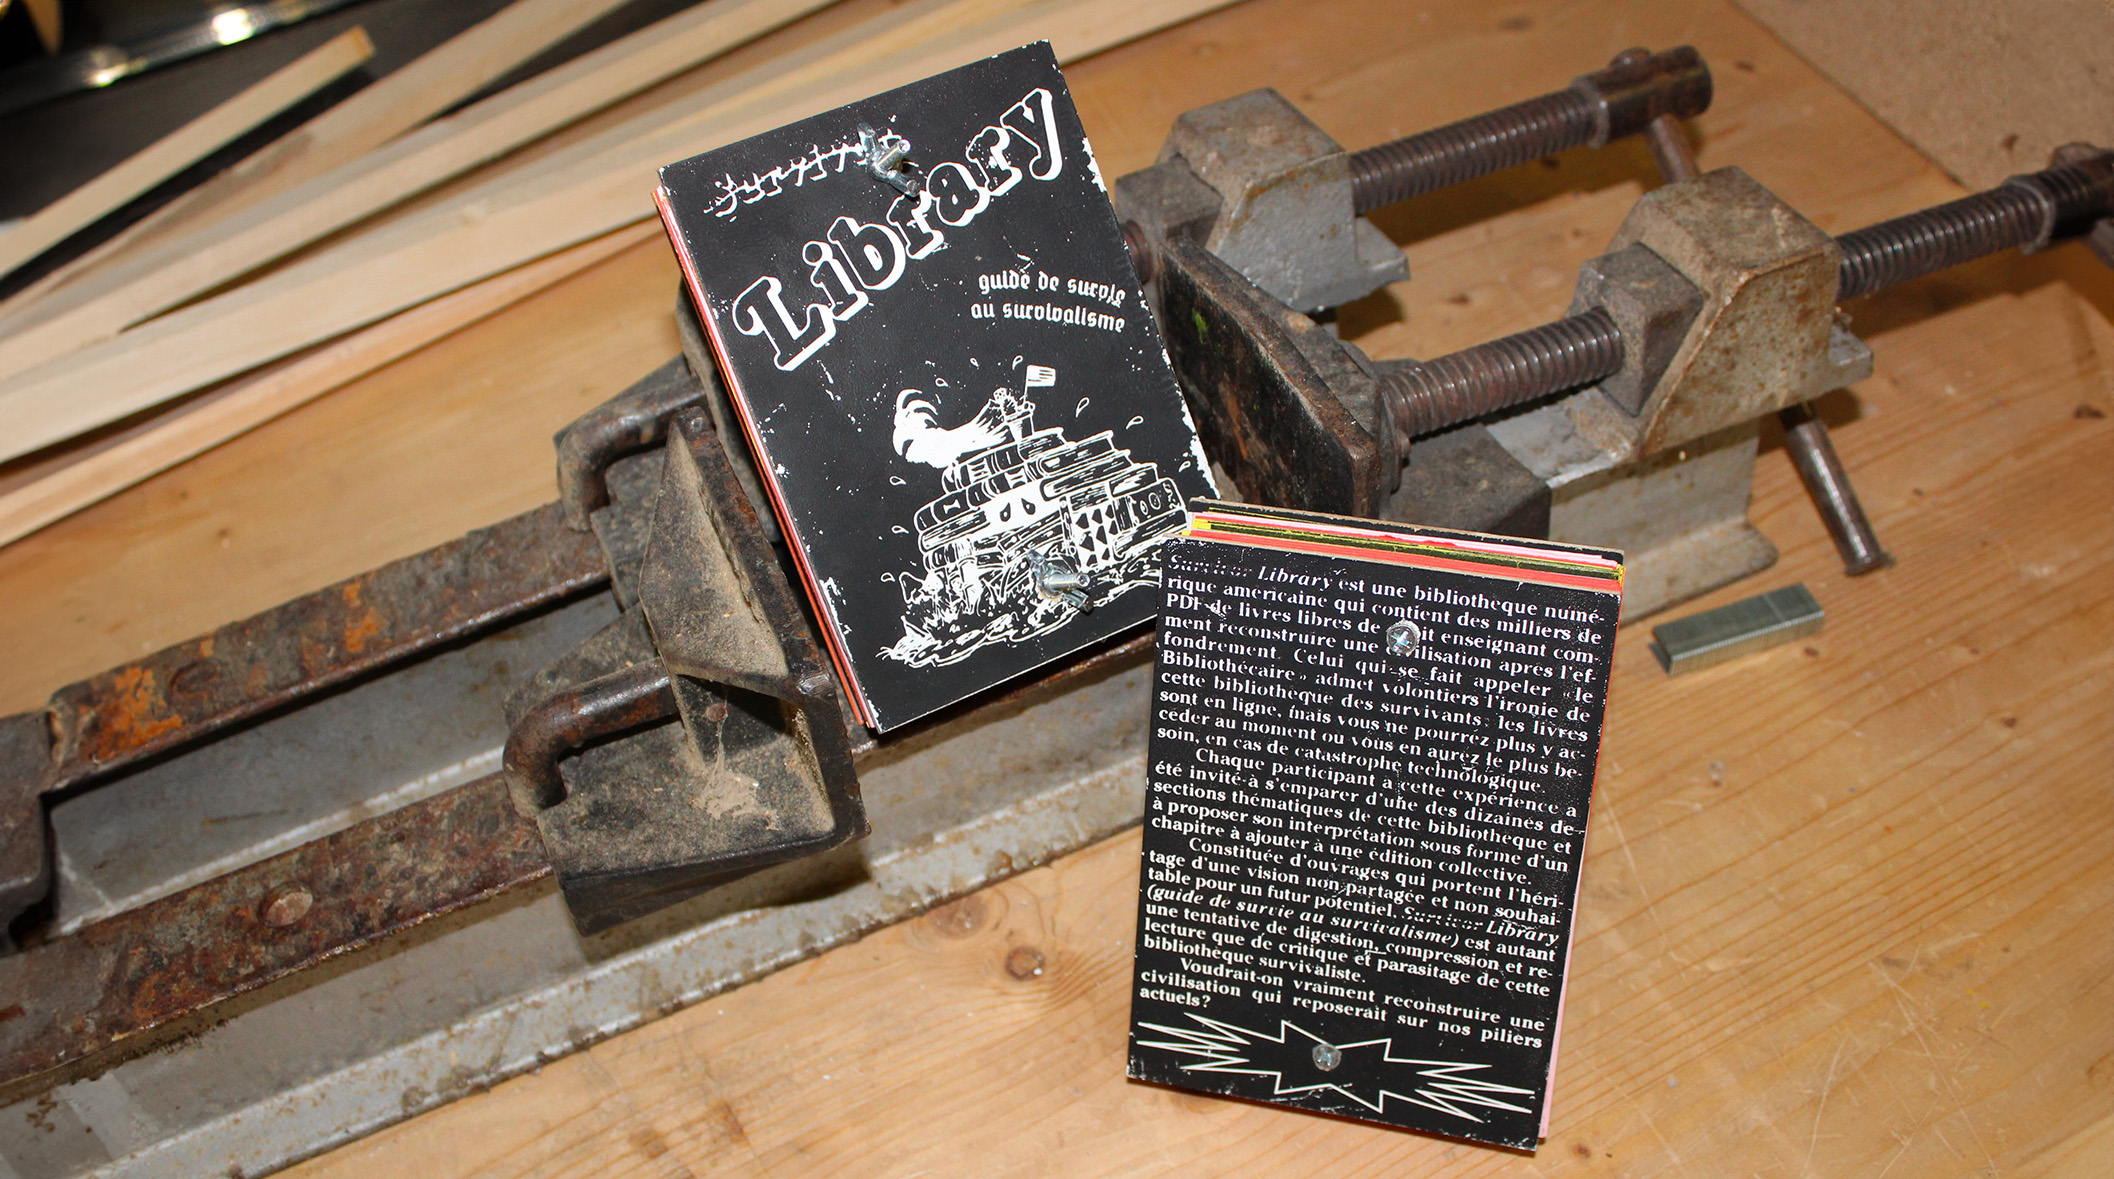 Survivor
Library
guide de survie
au survivalisme
Survivor Library est une bibliothèque numé-
rique américaine qui contient des milliers de
PDF de livres libres de enseignant com-
ment reconstruire une civilisation après l'ef-
fondrement. Celui qui se fait appeler « le
Bibliothécaire » admet volontiers l'ironie de
cette bibliothèque des survivants: les livres
sont en ligne, mais vous ne pourrez plus y ac-
céder au moment où vous en aurez le plus be-
soin, en cas de catastrophe technologique.
Chaque participant à cette expérience a
été invité à s'emparer d'une des dizaines de
sections thématiques de cette bibliothèque et
à proposer son interprétation sous forme d'un
chapitre à ajouter à une édition collective.
Constituée d'ouvrages qui portent l'héri-
tage d'une vision non partagée et non souhai-
table pour un futur potentiel, Survivor Library
(guide de survie au survivalisme) est autant
une tentative de digestion, compression et re-
lecture que de critique et parasitage de cette
bibliothèque survivaliste.
Voudrait-on vraiment reconstruire une
civilisation qui reposerait sur nos piliers
actuels?